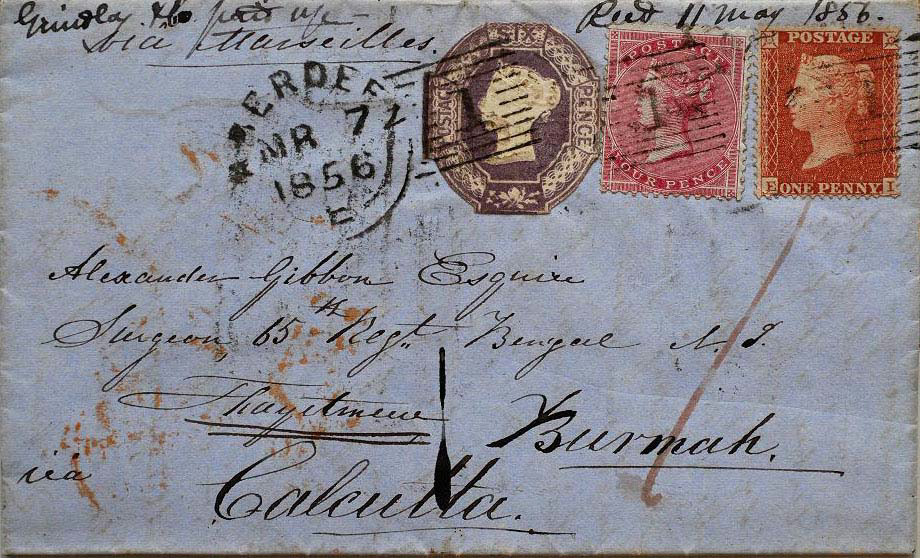 Grindlay & Co paid
Via Marseilles.
Recd 11 May 1856.
ABERDEEN
MR 7
1856
E
POSTAGE SIX PENCE
1
POSTAGE
FOUR PENCE
1
POSTAGE
E ONE PENNY I
1
Alexander Gibbon Esquire
Surgeon, 65th Regt. Bengal N. I.
Thayetmew
Burmah.
via
Calcutta.